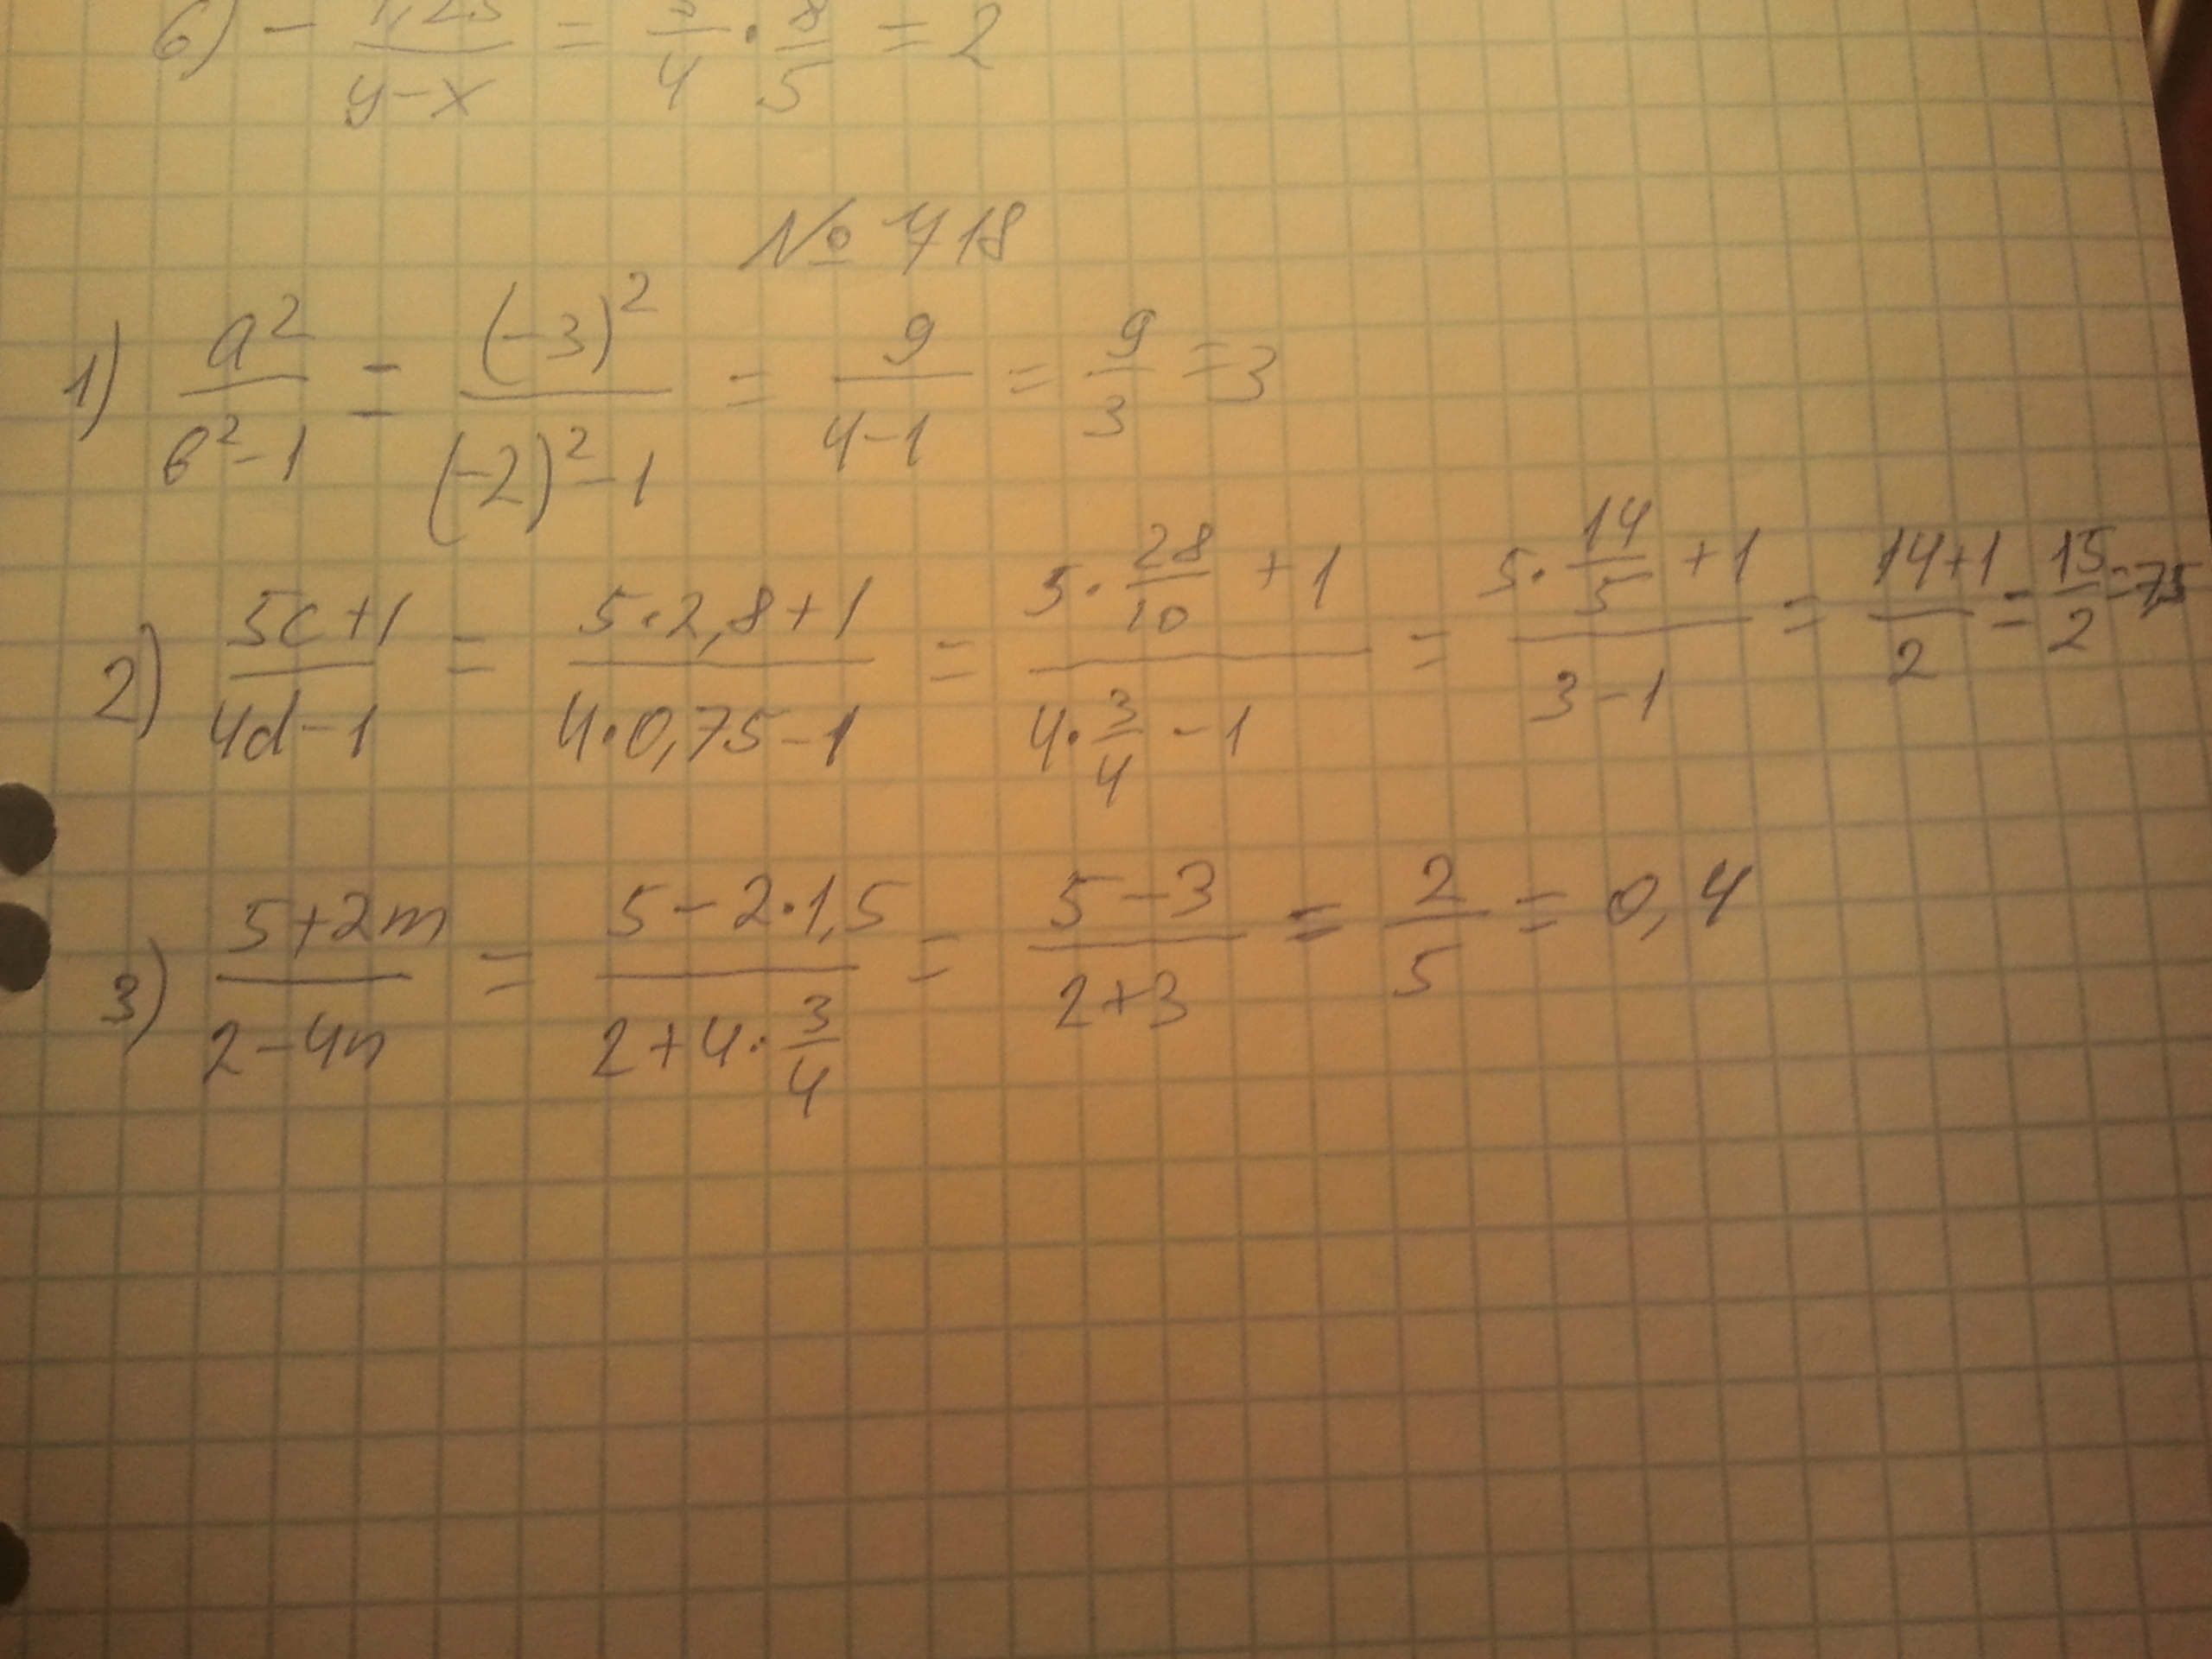 6) - 1,25/(y-x) = 5/4 · 8/5 = 2
№ 718
1) a²/(b²-1) = (-3)²/((-2)²-1) = 9/(4-1) = 9/3 = 3
2) (5c+1)/(4d-1) = (5·2,8+1)/(4·0,75-1) = (5·28/10+1)/(4·3/4-1) = (5·14/5+1)/(3-1) = (14+1)/2 = 15/2 = 7,5
3) (5+2m)/(2-4n) = (5-2·1,5)/(2+4·3/4) = (5-3)/(2+3) = 2/5 = 0,4